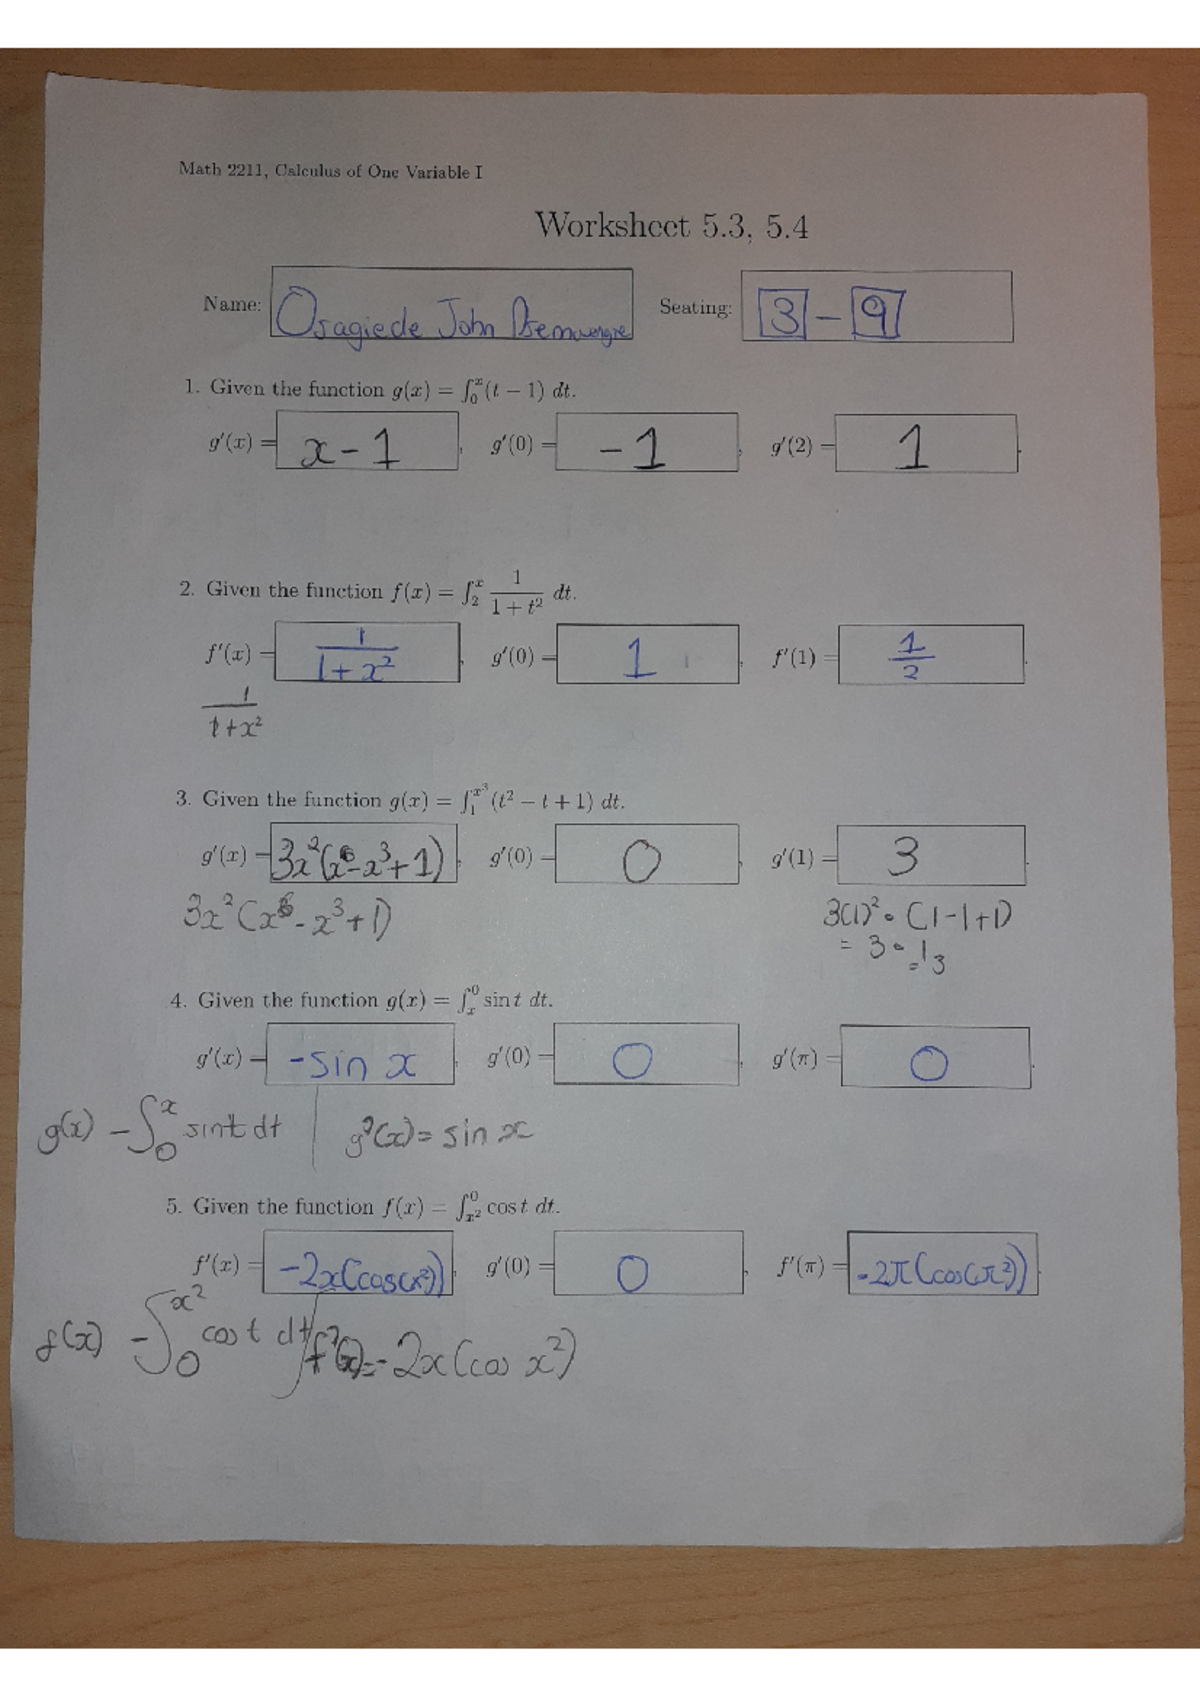 Math 2211, Calculus of One Variable I
Worksheet 5.3, 5.4
Name: Osagiede John Seating: 3 - 9
1. Given the function g(x) = ∫₀ˣ (t − 1) dt.
g′(x) = x - 1, g′(0) = -1, g′(2) = 1.
2. Given the function f(x) = ∫₂ˣ 1/(1 + t²) dt.
f′(x) = 1/(1+x²), g′(0) = 1, f′(1) = 1/2.
1/(1+x²)
3. Given the function g(x) = ∫₁^(x³) (t² − t + 1) dt.
g′(x) = 3x²(x⁶-x³+1), g′(0) = 0, g′(1) = 3.
3x²(x⁶-x³+1) 3(1)²•(1-1+1)
= 3•1
=3
4. Given the function g(x) = ∫ₓ⁰ sin t dt.
g′(x) = -sin x, g′(0) = 0, g′(π) = 0.
g(x) -∫₀ˣ sint dt | g'(x) = sin x
5. Given the function f(x) = ∫_(x²)^0 cos t dt.
f′(x) = -2x(cos(x²)), g′(0) = 0, f′(π) = -2π(cos(π²)).
f(x) -∫₀^(x²) cos t dt / f'(x)=-2x(cos x²)